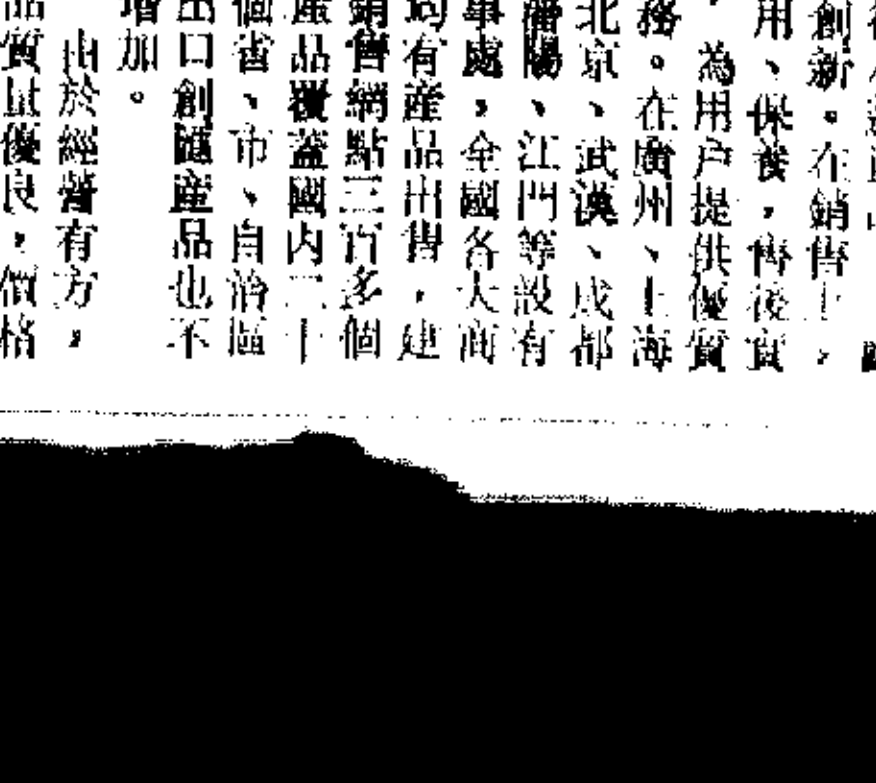 創新。在銷售上，
用、保養，售後實
，為用户提供優質
務。在廣州、上海
北京、武漢、成都
瀋陽、江門等設有
事處，全國各大商
均有産品出售，建
銷售網點三百多個
産品覆蓋國内二十
個省、市、自治區
出口創匯産品也不
增加。
由於經營有方，
品質量優良，價格